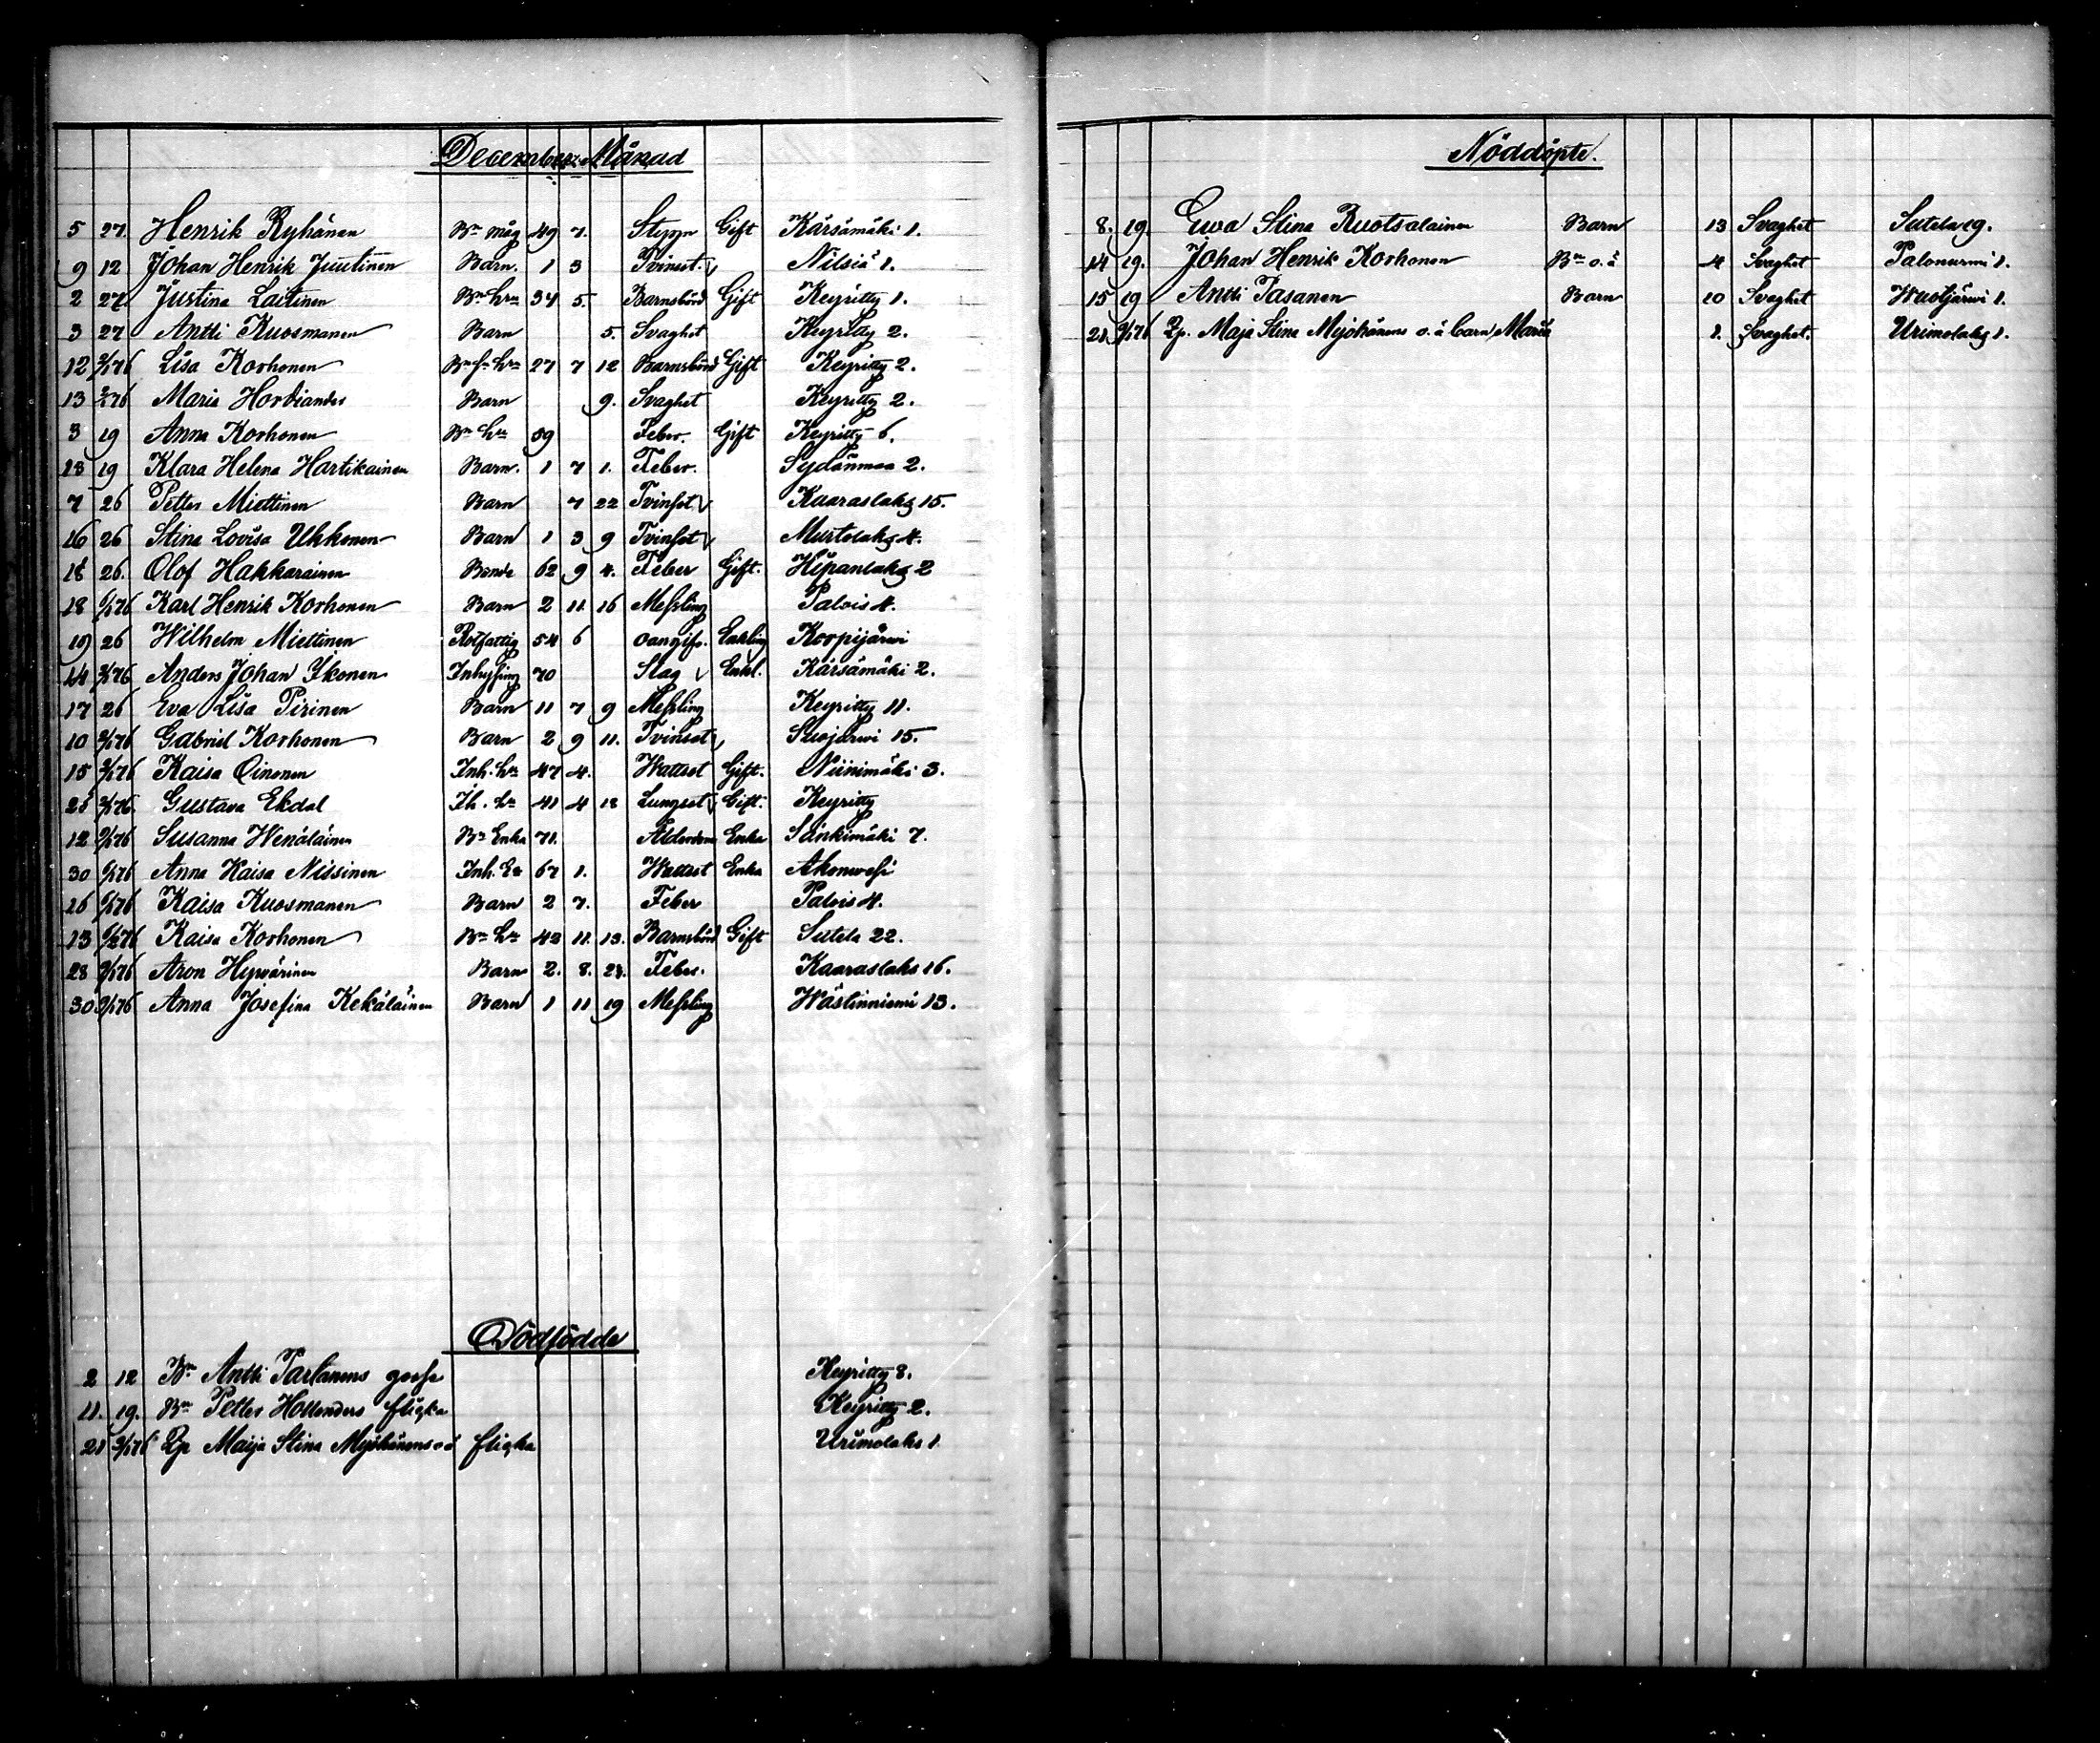 December Månad
5 27. Henrik Ryhänen Bn måg 49 7. Styng Gift Kärsämäki 1.
9 12 Johan Henrik Juutinen Barn. 1 3 Tvinsot. Nilsiä 1.
2 27 Justina Laitinen Bn hru 34 5. Barnsbörd Gift Keyritty 1.
3 27 Antti Kuosmanen Barn 5. Svaghet Keyritty 2.
12 2/1 76 Lisa Korhonen 27 7 12 Barnsbörd Gift Keyritty 2.
13 2/1 76 Maria Barn 9. Svaghet Keyritty 2.
3 19 Anna Korhonen Bn hu 59 Feber. Gift Keyritty 6.
13 19 Klara Helena Hartikainen Barn. 1 7 1. Feber. Sydänmaa 2.
7 26 Petter Miettinen Barn 7 22 Tvinsot Kaaraslaks 15.
16 26 Stina Lovisa Ukkonen Barn 1 3 9 Tvinsot Murtolaks 4.
18 26. Olof Hakkarainen Bonde 62 9 4. Feber Gift. Hipanlaks 2
18 6/1 76 Karl Henrik Korhonen Barn 2 11. 16 Messling Palois 4.
19 26 Wilhelm Miettinen Rotfattig 54 6 oangifv. Enkling Korpijärvi
14 2/1 76 Anders Johan Ikonen Inhysing 70 Slag Enkl. Kärsämäki 2.
17 26 Eva Lisa Pirinen Barn 11 7 9 Messling Keyritty 11.
10 2/1 76 Gabriel Korhonen Barn 2 9 11. Tvinsot Suojärvi 15.
15 2/1 76 Kaisa Oinonen Inh. hu 47 4. Wattsot Gift. Niinimäki 3.
25 2/1 76. Gustava Ekdal Ih. hu 41 4 18 Lungsot Gift. Keyritty
12 9/1 76 Susanna Wenäläinen Bn Enka 71. Ålderdom Enka Sänkimäki 7.
30 6/1 76 Anna Kaisa Nissinen Inh. Ea 67 1. Wattsot Enka Akonvesi
26 6/1 76 Kaisa Kuosmanen Barn 2 7. Feber Palois 4.
13 6/2 76 Kaisa Korhonen Bn hu 42 11. 13. Barnsbörd Gift Sutela 22.
28 9/1 76 Aron Hyvärinen Barn 2. 8. 28. Feber. Kaaraslaks 16.
30 9/1 76 Anna Josefina Kekäläinen Barn 1 11 19 Messling Wästinniemi 13.
Dödfödde
2 12 Bn Antti Partanens gosse Keyritty 8.
11. 19. Bn Petter Hollenders flicka Keyritty 2.
21 2/1 76 Pp Maija Stina Myöhänens o ä flicka Urimolaks 1
Nöddöpte.
8. 19 Ewa Stina Ruotsalainen Barn 13 Svaghet Sutela 19.
14 19. Johan Henrik Korhonen Bn o. ä 4 Svaghet Palonurmi 1.
15 19 Antti Pasanen Barn 10 Svaghet Wuotjärwi 1.
21 2/1 76 Pp. Maja Stina Myöhänens o. ä barn Maria 1. Svaghet. Urimolaks 1.